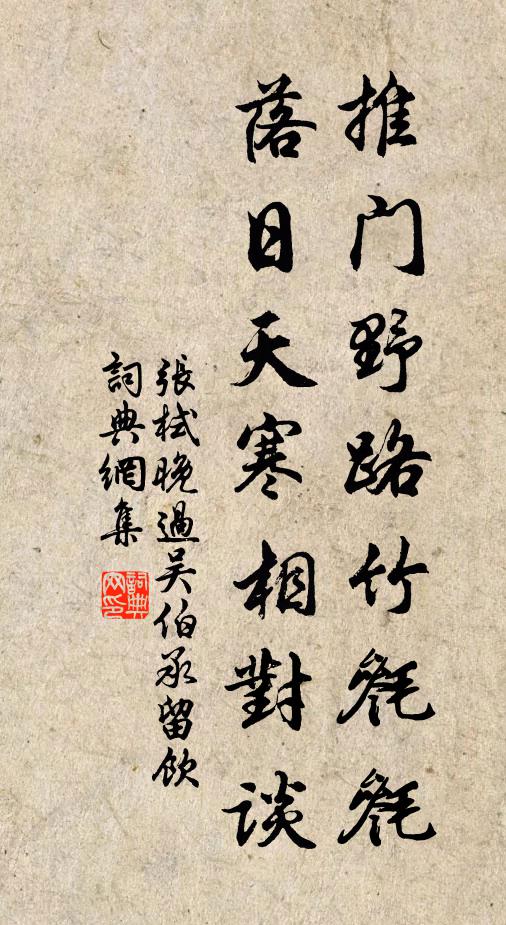 推门野路竹毿毿
落日天寒相對谈
張栻晚過吴伯承留飲
詞典網集
詞典
网印